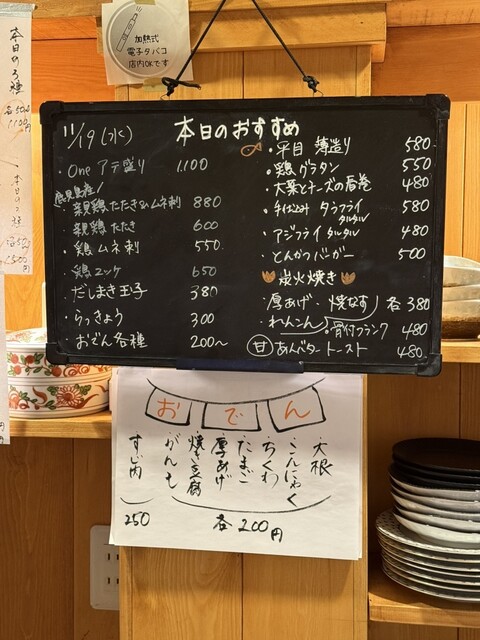 加熱式
電子タバコ
店内OKです
本日の3種
11/19(水) 本日のおすすめ
・One アテ盛り 1,100
鹿児島産!
・親鶏たたき&ムネ刺 880
・親鶏たたき 600
・鶏ムネ刺 550
・鶏ユッケ 650
・だしまき玉子 380
・らっきょう 300
・おでん各種 200〜
・平目 薄造り 580
・鶏グラタン 550
・大葉とチーズの春巻 480
・手仕込み タラフライ タルタル 580
・アジフライ タルタル 480
・とんかつバーガー 500
炭火焼き
・厚あげ・焼なす 各380
・れんこん
・骨付フランク 480
甘 あんバタートースト 480
おでん
・大根
・こんにゃく
・ちくわ
・たまご
・厚あげ
・焼き豆腐
・がんも
各200円
・すじ肉
250